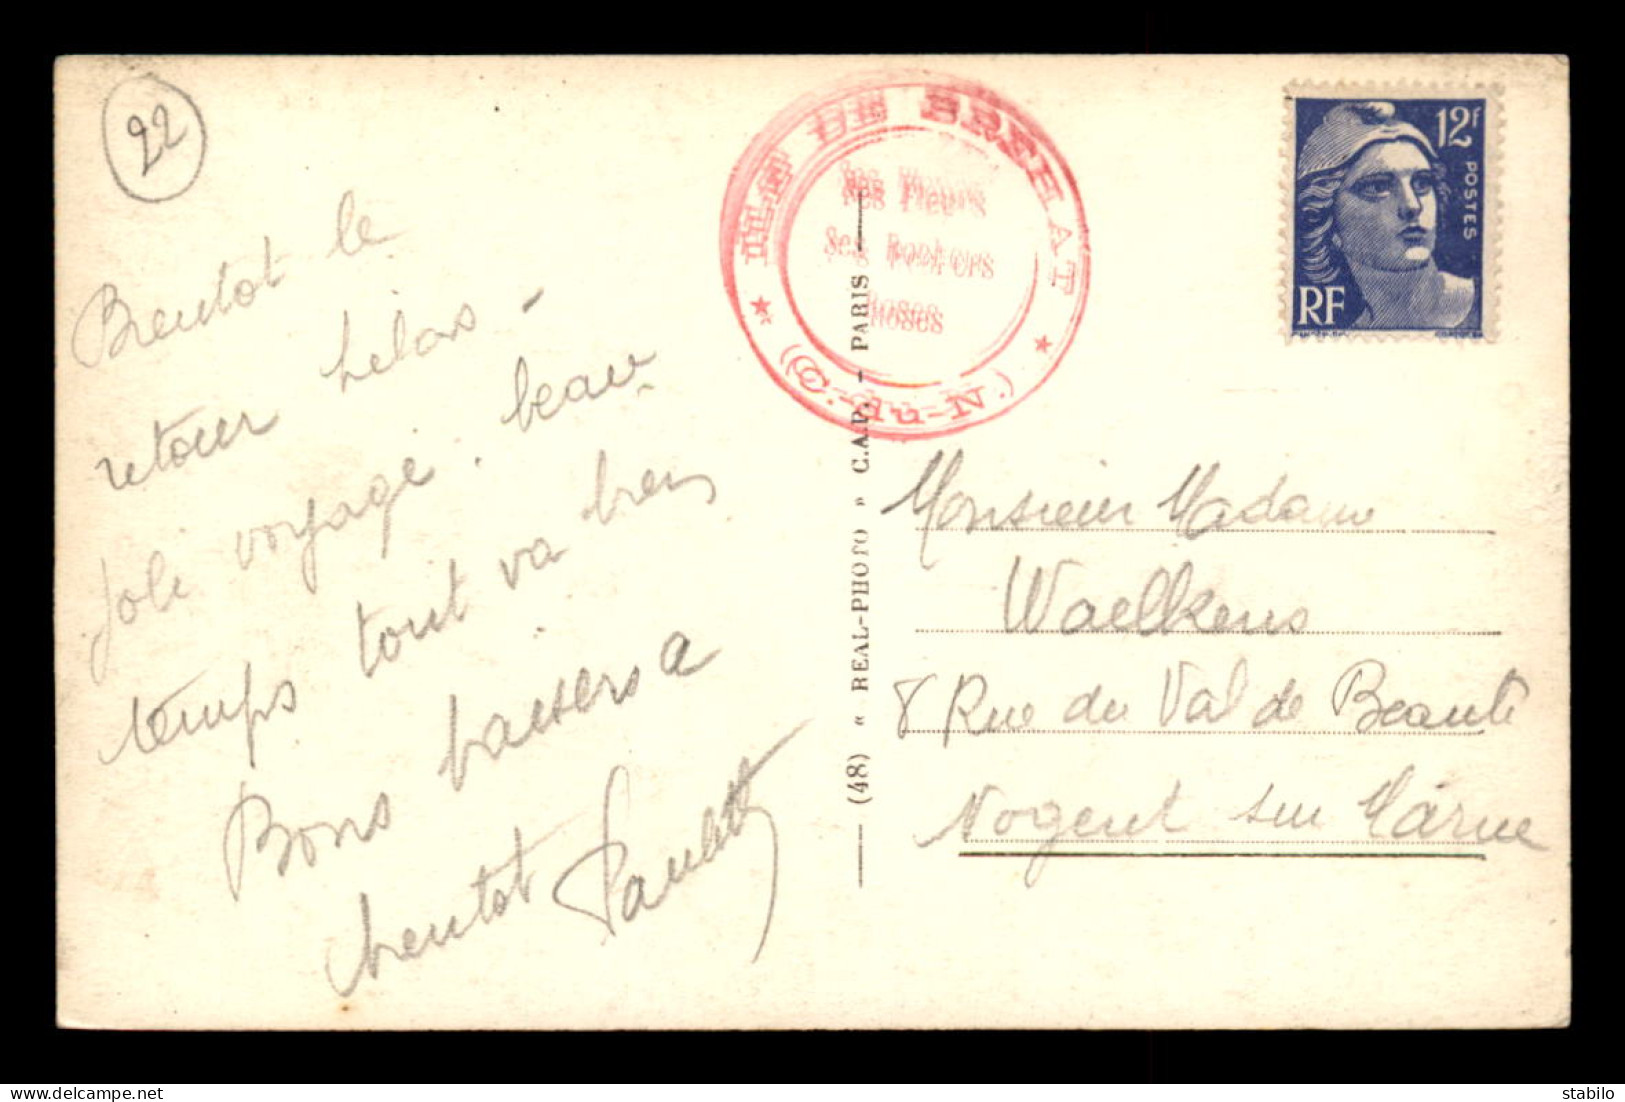 22
Bientot le
retour hélas -
Joli voyage. beau
temps tout va bien
Bons baisers a
bientot Paulette
ILE DE BREHAT
Ses Fleurs
Ses Rochers
Roses
(C.-du-N.)
(48) « REAL-PHOTO » C.A.P. - PARIS
12F
POSTES
RF
Monsieur Madame
Waelkens
8 Rue du Val de Beauté
Nogent sur Marne
stabilo